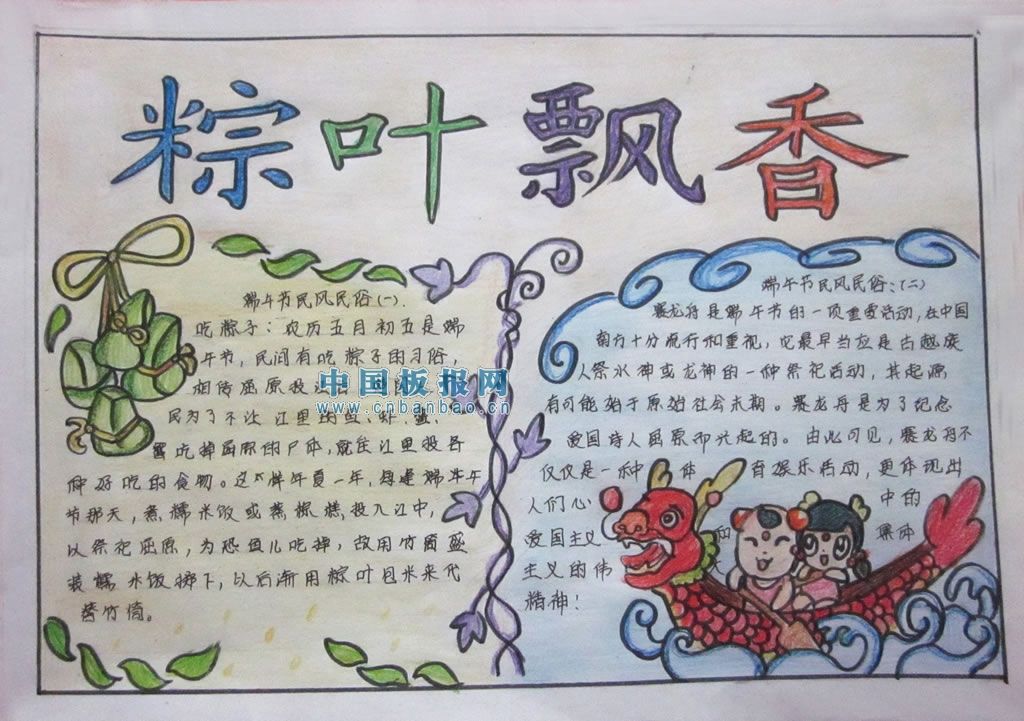 粽叶飘香
端午节民风民俗(一).
吃粽子：农历五月初五是端
午节，民间有吃粽子的习俗，
相传屈原投江
中国板报网
www.cnbanbao.cn
民为了不让江里的鱼、虾、
吃掉屈原的尸体，就往江里投各
种好吃的食物。这样年复一年，每逢端午
节那天，煮糯米饭或蒸粽糕投入江中，
以祭祀屈原，为恐鱼儿吃掉，故用竹筒盛
装糯米饭掷下，以后渐用粽叶包米来代
替竹筒。
端午节民风民俗：(二)
赛龙舟是端午节的一项重要活动，在中国
南方十分流行和重视，它最早当应是古越族
人祭水神或龙神的一种祭祀活动，其起源
有可能始于原始社会末期。赛龙舟是为了纪念
爱国诗人屈原而兴起的。由此可见，赛龙舟不
仅仅是一种体育娱乐活动，更体现出
人们心中的
爱国主义和集体
主义的伟
精神！